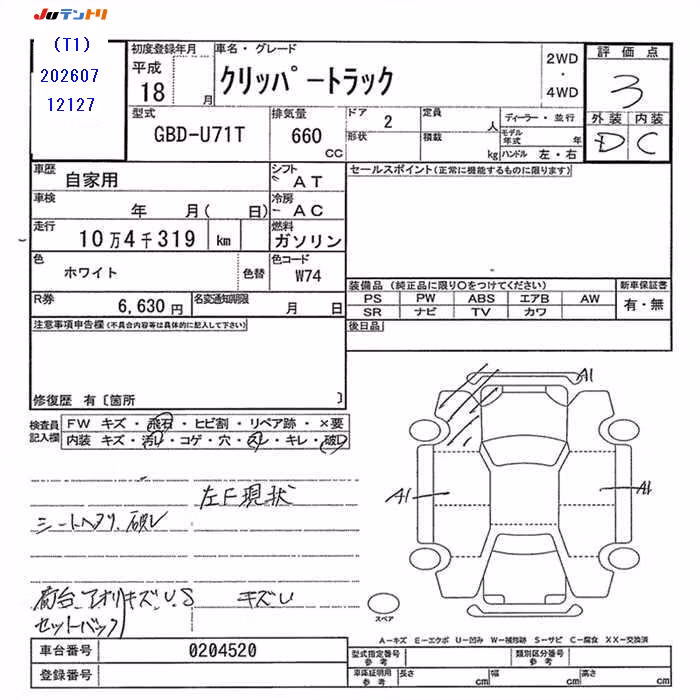 JUテントリ
(T1)
202607
12127
初度登録年月
平成
18 月
車名・グレード
クリッパートラック
2WD
・
4WD
評価点
3
外装 内装
D C
型式
GBD-U71T
排気量
660
CC
ドア 2
形状
定員 人
積載 kg
ディーラー・並行
モデル年式 年
ハンドル 左・右
車歴
自家用
シフト
AT
車検
年 月( 日)
冷房
AC
走行
10万4千319 km
燃料
ガソリン
色
ホワイト
色替
色コード
W74
R券
6,630円
名変通知期限
月 日
セールスポイント(正常に機能するものに限ります)
装備品(純正品に限り○をつけてください)
PS PW ABS エアB AW
SR ナビ TV カワ
新車保証書
有・無
後日品
注意事項申告欄(不具合内容等は具体的に記入して下さい)
修復歴 有〔箇所 〕
検査員
記入欄
FW キズ・飛石・ヒビ割・リペア跡・×要
内装 キズ・汚れ・コゲ・穴・スレ・キレ・破レ
左F現状
シートヘタリ、破レ
荷台、アオリキズU.S キズU
セットバック
A1
A1
A1
スペア
A－キズ E－エクボ U－凹み W－補修跡 S－サビ C－腐食 XX－交換済
車台番号 0204520
登録番号
型式指定番号
参考
類別区分番号
参考
車庫証明用
参考
長さ cm
幅 cm
高さ cm